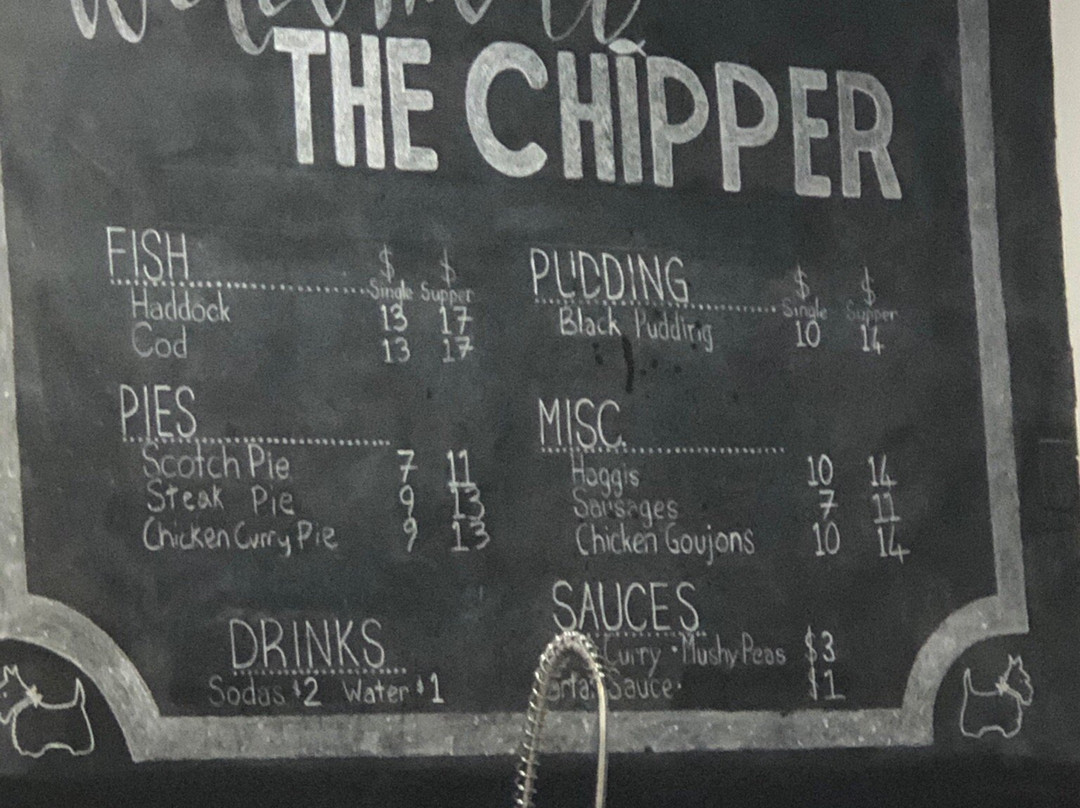 Welcome to
THE CHIPPER
FISH $ $
Single Supper
Haddock 13 17
Cod 13 17
PIES
Scotch Pie 7 11
Steak Pie 9 13
Chicken Curry Pie 9 13
DRINKS
Sodas $2 Water $1
PUDDING $ $
Single Supper
Black Pudding 10 14
MISC.
Haggis 10 14
Sausages 7 11
Chicken Goujons 10 14
SAUCES
Curry • Mushy Peas $3
Sauce • $1